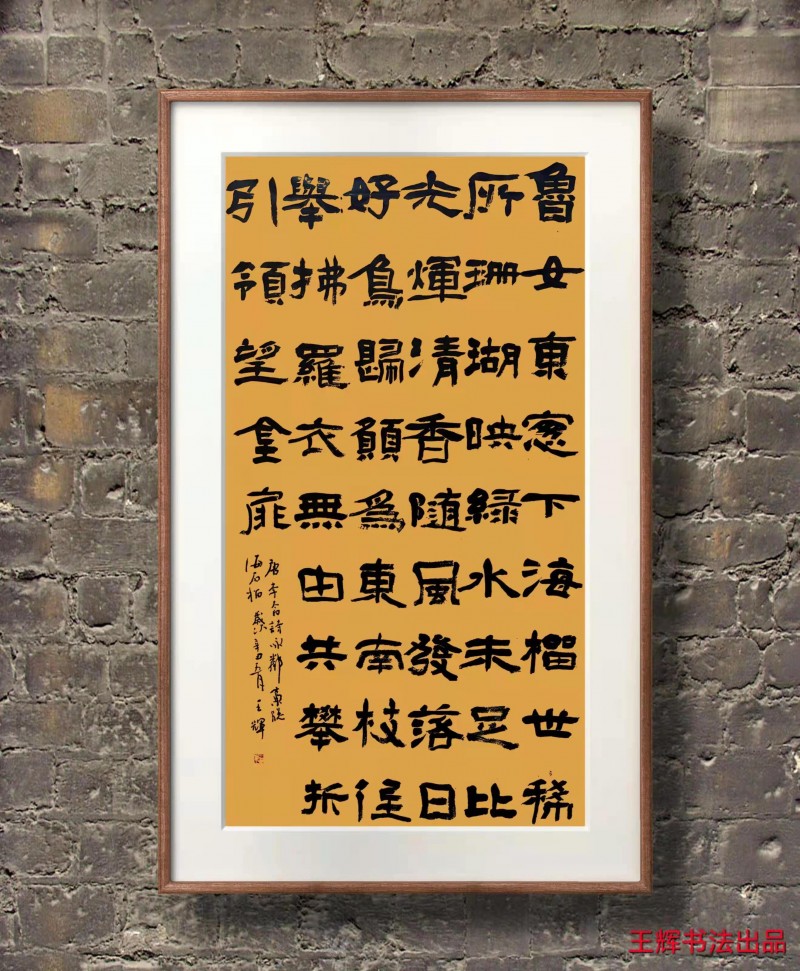 魯女東窻下海榴世稀
所珊瑚映緑水未足比
光煇清香随風發落日
好鳥歸願爲東南枝低
舉拂羅衣無由共攀折
引領望金扉
唐李白詩詠鄰東窓
海石榴歲辛丑五月王輝
王辉书法出品